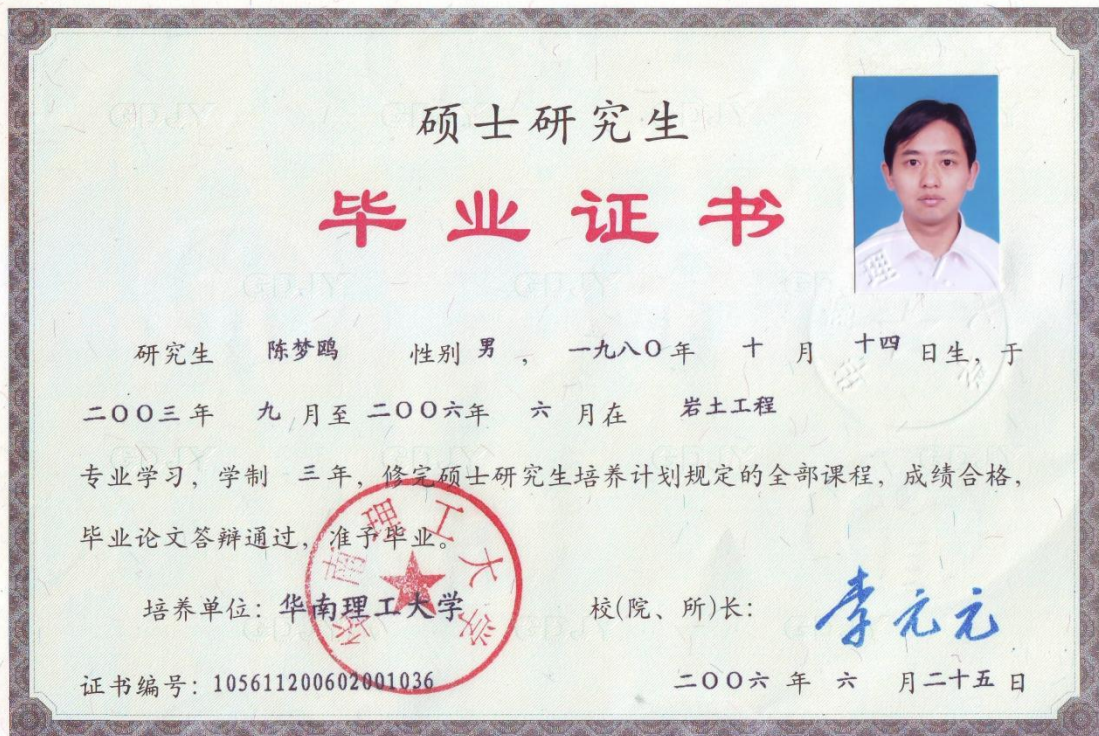 硕士研究生
毕业证书
研究生 陈梦鸥 性别 男 , 一九八〇年 十 月 十四 日生, 于
二〇〇三年 九 月至 二〇〇六年 六 月在 岩土工程
专业学习, 学制 三年, 修完硕士研究生培养计划规定的全部课程, 成绩合格,
毕业论文答辩通过, 准予毕业。
华南理工大学
培养单位: 华南理工大学 校(院、所)长: 李元元
证书编号: 105611200602001036 二〇〇六 年 六 月二十五日